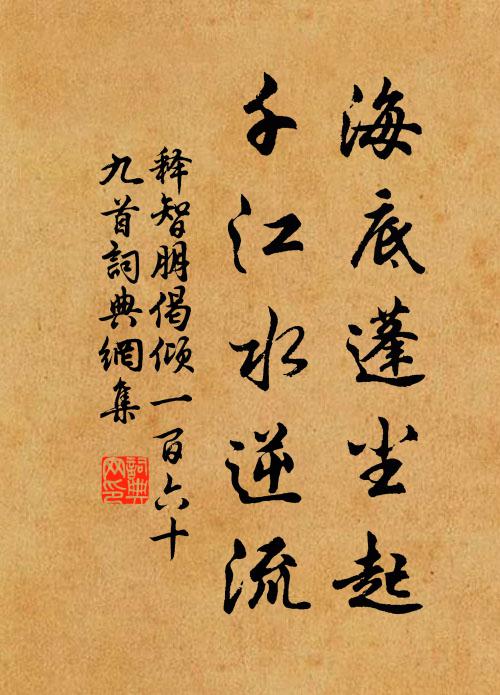 海底蓬尘起
千江水逆流
释智朋偈倾一百六十
九首詞典網集
詞典
网印